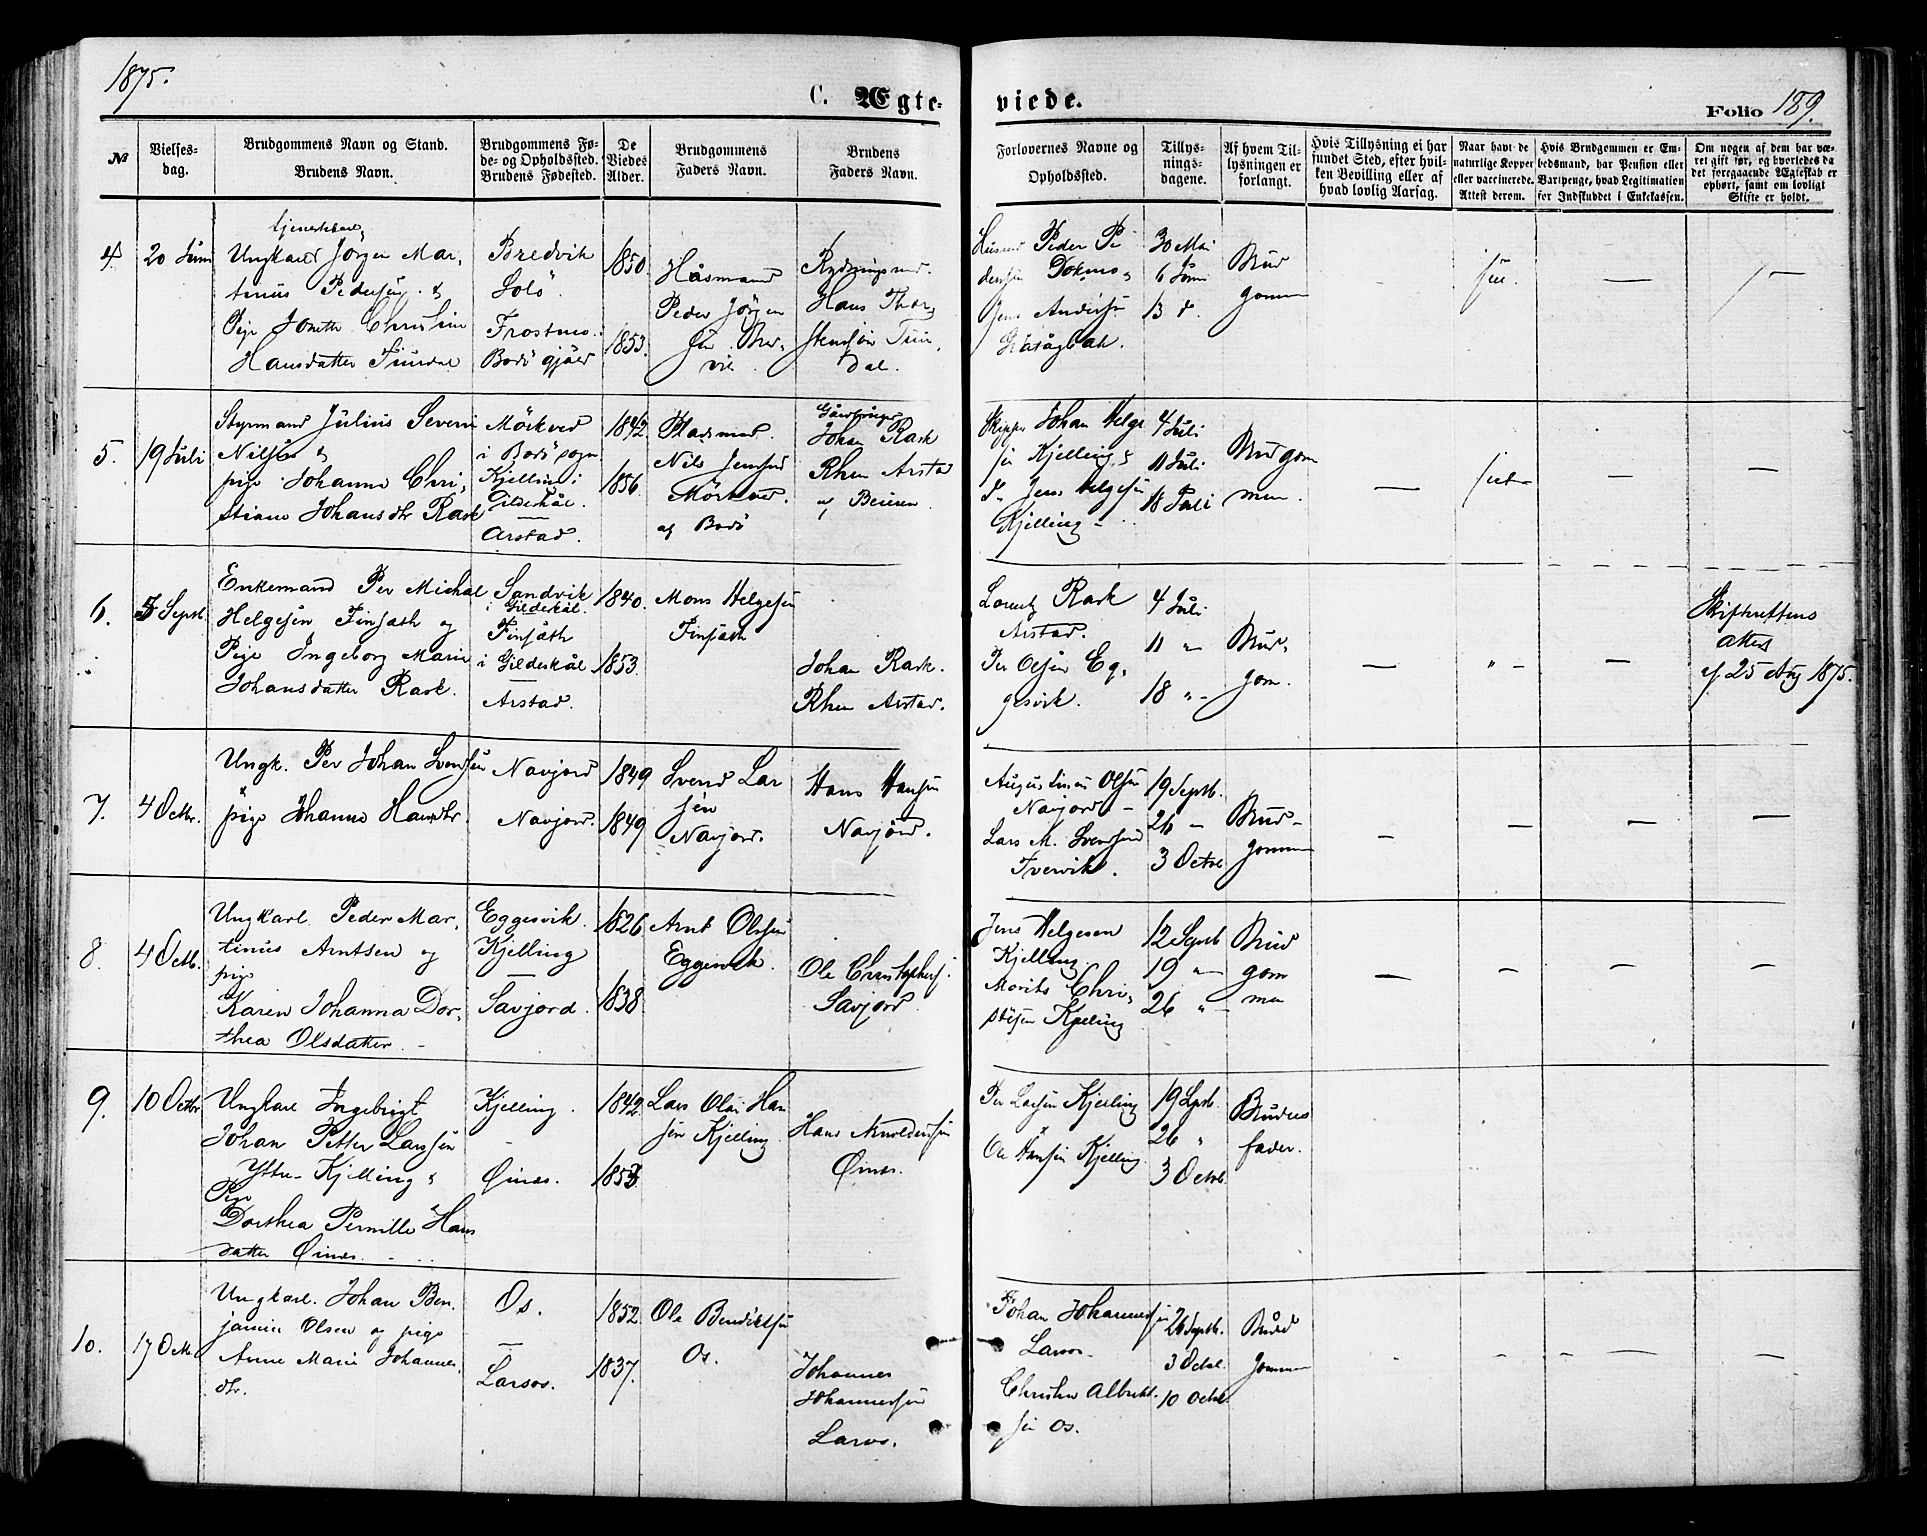 1875.
C. Ægteviede.
Folio 189.
№
Vielsesdag.
Brudgommens Navn og Stand.
Brudens Navn.
Brudgommens Føde- og Opholdssted.
Brudens Fødested.
De Viedes Alder.
Brudgommens Faders Navn.
Brudens Faders Navn.
Forlovernes Navne og Opholdssted.
Tillysningsdagene.
Af hvem Tillysningen er forlangt.
Hvis Tillysning ei har fundet Sted, efter hvilken Bevilling eller af hvad lovlig Aarsag.
Naar havt de naturlige Kopper eller vaccinerede. Attest derom.
Hvis Brudgommen er Embedsmand, har Pension eller Vartpenge, hvad Legitimation for Indskuddet i Enkekassen.
Om nogen af dem har været gift før, og hvorledes da det foregaaende Ægteskab er ophørt, samt om lovligt Skifte er holdt.
4.
20 Juni
Ungkarl Jörgen Mar-
tinus Pedersen &
Pige Christin
Hansdatter
Bredvik
Solö.
Bodö
1850.
1853.
Peder Jörgen
Hans
dal.
Peder
30 Mai
6 Juni
13 d.
Brud
gommen
5.
19 Juli
Styrmand Julius Severin
Nilsen &
pige Johanna Chri-
stiane Johansdtr Rask
Mörkved
i Bodö sogn
Kjelling i
Gildeskål.
Arstad.
1842.
1856.
Pladsmd.
Nils Jensen
Mörkved.
af Bodö
Gaardbruger
Johan Rask
Rhen Arstad
af Beieren.
Skipper Johan Helge
sen Kjelling &
do Jens Helgesen
Kjelling
4 Juli
11 Juli
18 Juli
Brudgom
men.
6.
5 Septb.
Enkemand Per Michal
Helgesen Finsæth og
Pige Ingeborg Marie
Johansdatter Rask.
Sandvik
i Gildeskål
Finsæth
i Gildeskål
Arstad.
1840.
1853.
Mons Helgesen
Finsæth
Johan Rask.
Rhen Arstad.
Lorentz Rask
Arstad.
Per Olsen Eg-
gesvik.
4 Juli
11 "
18 "
Brud-
gom.
Skifterettens
Attest
af 25 Aug 1875.
7.
4 Octbr.
Ungk. Per Johan Svendsen
&
pige Johanna Hansdtr.
Navjord
Navjord.
1849
1849
Svend Lar
sen
Navjord.
Hans Hansen
Navjord.
Augustinus Olsen
Navjord
Lars M. Svendsen
Tvervik.
19 Septb.
26 "
3 Octbr
Brud-
gommen
8.
4 Octb.
Ungkarl Peder Mar-
tinus Arntsen og
pige
Karen Johanna Dor-
thea Olsdatter.
Eggesvik.
Kjelling
Savjord.
1826
1838
Arnt Olsen
Eggesvik.
Ole Christophers.
Savjord.
Jens Helgesen
Kjelling.
Morits Chri-
stesen Kjelling
12 Septb
19 "
26 "
Brud
gom
men
9.
10 Octbr
Ungkarl Ingebrigt
Johan Petter Larssen
Ytre-Kjelling &
Pige
Dorthea Pernille Hans
datter Öines.
Kjelling.
Öines.
1842.
Lars Olai Han
sen Kjelling
Hans
Öines.
Per Larsen Kjelling
Ole Hansen Kjelling
19 Septb.
26 "
3 Octbr.
Brudens
fader.
10.
17 Octb.
Ungkarl. Johan Ben-
jamin Olsen og pige
Anne Marie Johannes-
dtr.
Os.
Larsos.
1852.
1837.
Ole Bendiktsen
Os.
Johannes
Johannessen
Larsos.
Johan Johannessen
Larsos.
Christen Albrikt-
sen Os.
26 Septb.
3 Octbr.
10 Octbr.
Brud
gommen